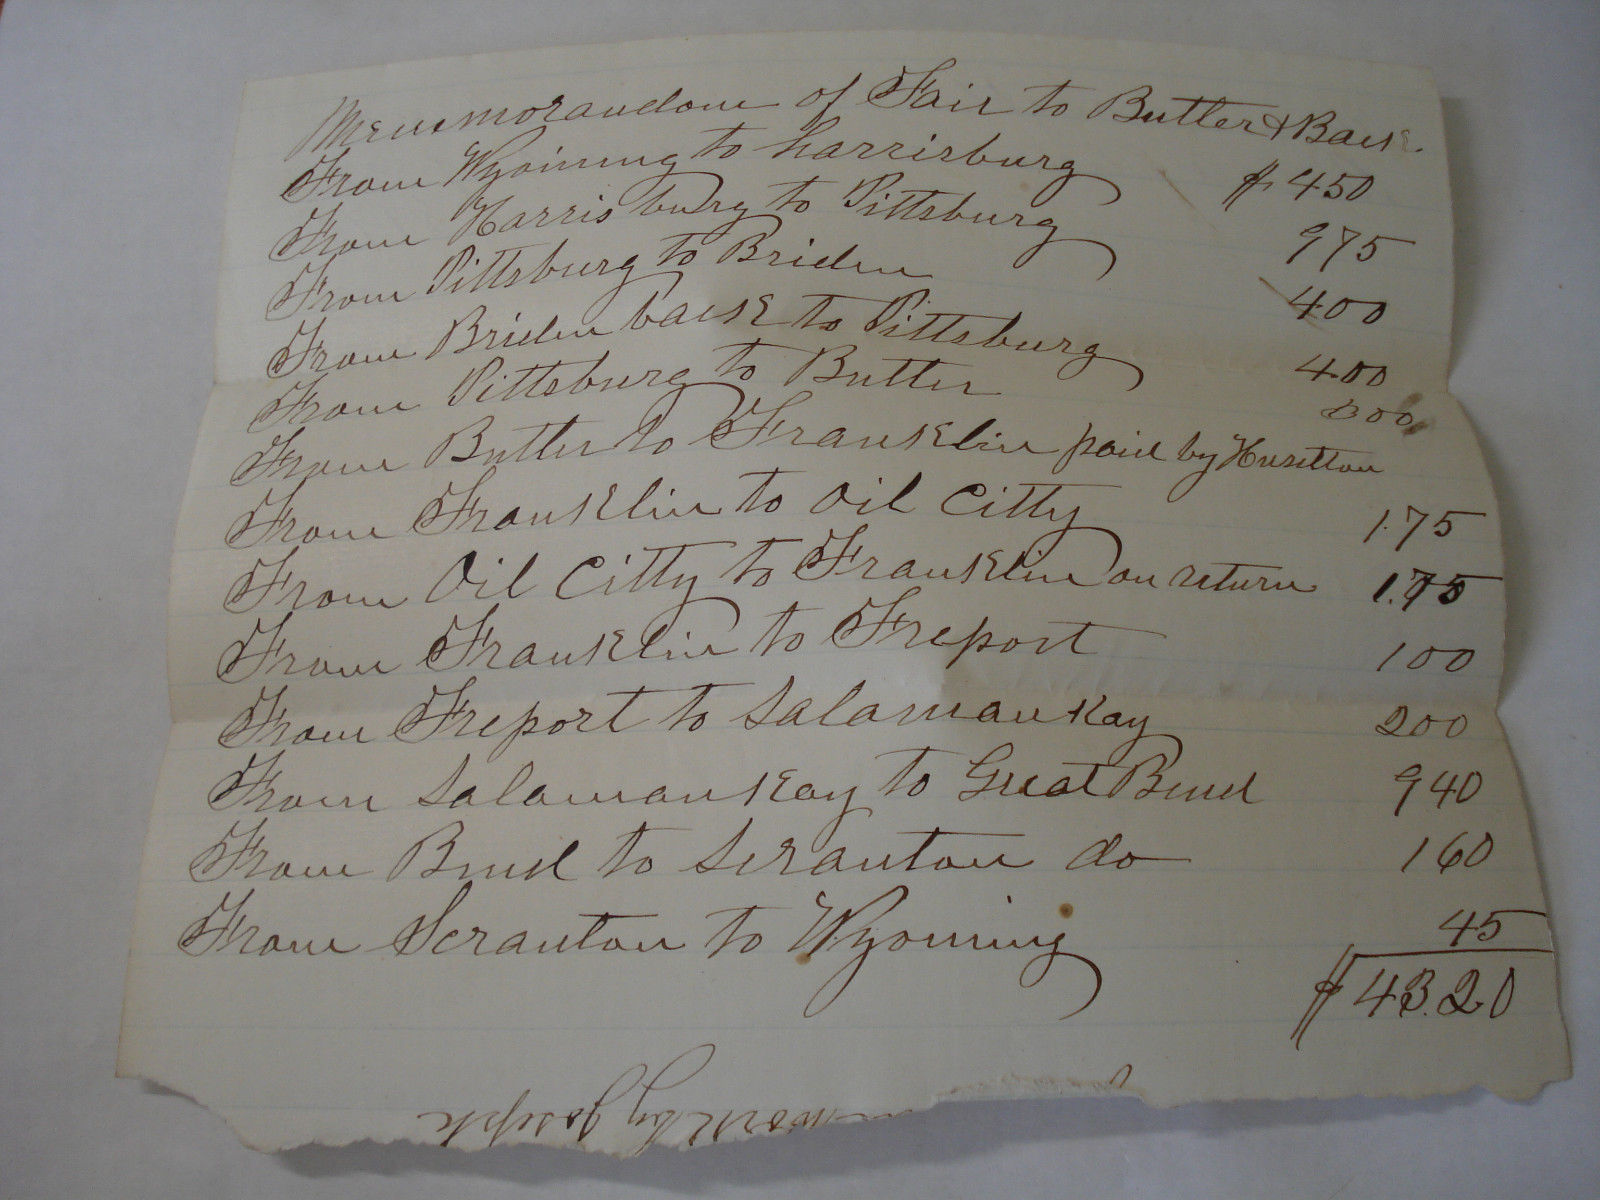 Memmorandom of Fair to Butler & Back
From Wyoiming to harrisburg $ 450
From Harrisburg to Pittsburg 975
From Pittsburg to Briden 400
From Briden back to Pittsburg 400
From Pittsburg to Butler 300
From Butler to Franklin paid by
From Franklin to Oil Citty 1.75
From Oil Citty to Franklin on return 1.75
From Franklin to Freport 100
From Freport to Salamankay 200
From Salamankay to Great Bend 940
From Bend to Scranton do 160
From Scranton to Wyoming 45
$ 43.20
work by Joseph